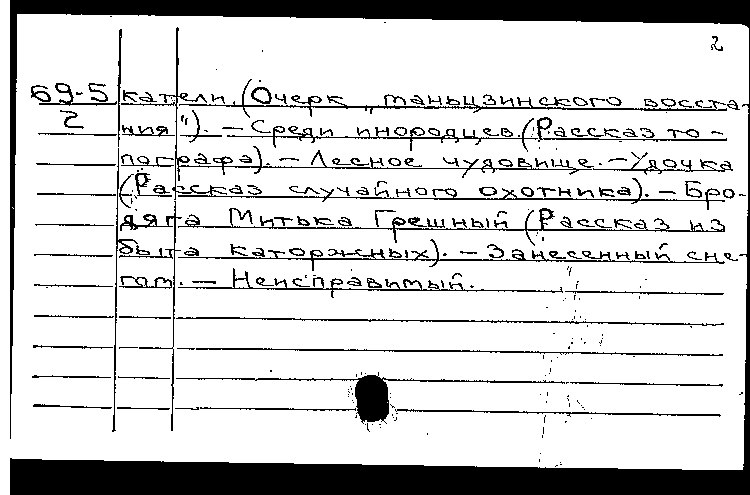 2
69-5 катели. (Очерк „таньцзинского восста-
2 ния"). – Среди инородцев. (Рассказ то-
пографа). – Лесное чудовище. – Удочка
(Рассказ случайного охотника). – Бро-
дяга Митька Грешный (Рассказ из
быта каторжных). – Занесенный сне-
гом. – Неисправимый.